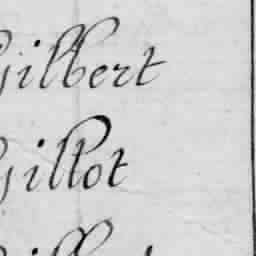 Gilbert
Gillot